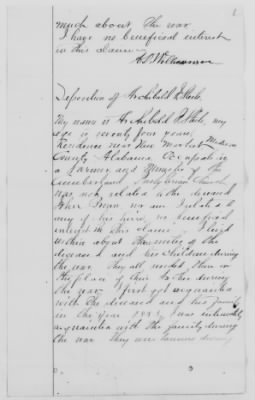 much about the war
I have no beneficial interest
in this claim.
A. S. Williamson
Deposition of Archibald
My name is Archibald my
age is seventy four years,
Residence near New Market Madison
County Alabama Occupation is
a Farmer and Minister of the
Cumberland Presbyterian Church
Was not related to the deceased
nor am I related to
any of his heirs, no beneficial
interest in this claim. I lived
within about three miles of the
deceased and his children during
the war. They all resided then on
the place of their father during
the war. I first got acquainted
with the deceased and his family
in the year I was intimately
acquainted with the family during
the war They were farmers during